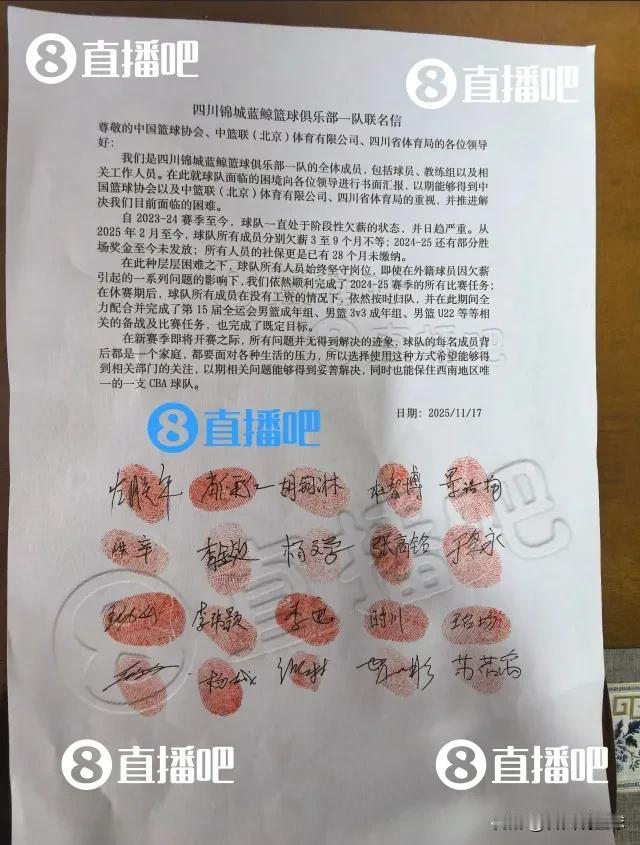 8直播吧
8直播吧
四川锦城蓝鲸篮球俱乐部一队联名信
尊敬的中国篮球协会、中篮联（北京）体育有限公司、四川省体育局的各位领导
好：
我们是四川锦城蓝鲸篮球俱乐部一队的全体成员，包括球员、教练组以及相
关工作人员。在此就球队面临的困境向各位领导进行书面汇报，以期能够得到中
国篮球协会以及中篮联（北京）体育有限公司、四川省体育局的重视，并推进解
决我们目前面临的困难。
自 2023-24 赛季至今，球队一直处于阶段性欠薪的状态，并日趋严重。从
2025 年 2 月至今，球队所有成员分别欠薪 3 至 9 个月不等；2024-25 还有部分胜
场奖金至今未发放；所有人员的社保更是已有 28 个月未缴纳。
在此种层层困难之下，球队所有人员始终坚守岗位，即使在外籍球员因欠薪
引起的一系列问题的影响下，我们依然顺利完成了 2024-25 赛季的所有比赛任务；
在休赛期后，球队所有成员在没有工资的情况下，依然按时归队，并在此期间全
力配合并完成了第 15 届全运会男篮成年组、男篮 3v3 成年组、男篮 U22 等等相
关的备战及比赛任务，也完成了既定目标。
在新赛季即将开赛之际，所有问题并无得到解决的迹象，球队的每名成员背
后都是一个家庭，都要面对各种生活的压力，所以选择使用这种方式希望能够得
到相关部门的关注，以期相关问题能够得到妥善解决，同时也能保住西南地区唯
一的一支 CBA 球队。
日期：2025/11/17
8直播吧
杜智博 景浩阳
张高铭 于梁永
李珠颖 李迅 时川
8直播吧
8直播吧
8直播吧